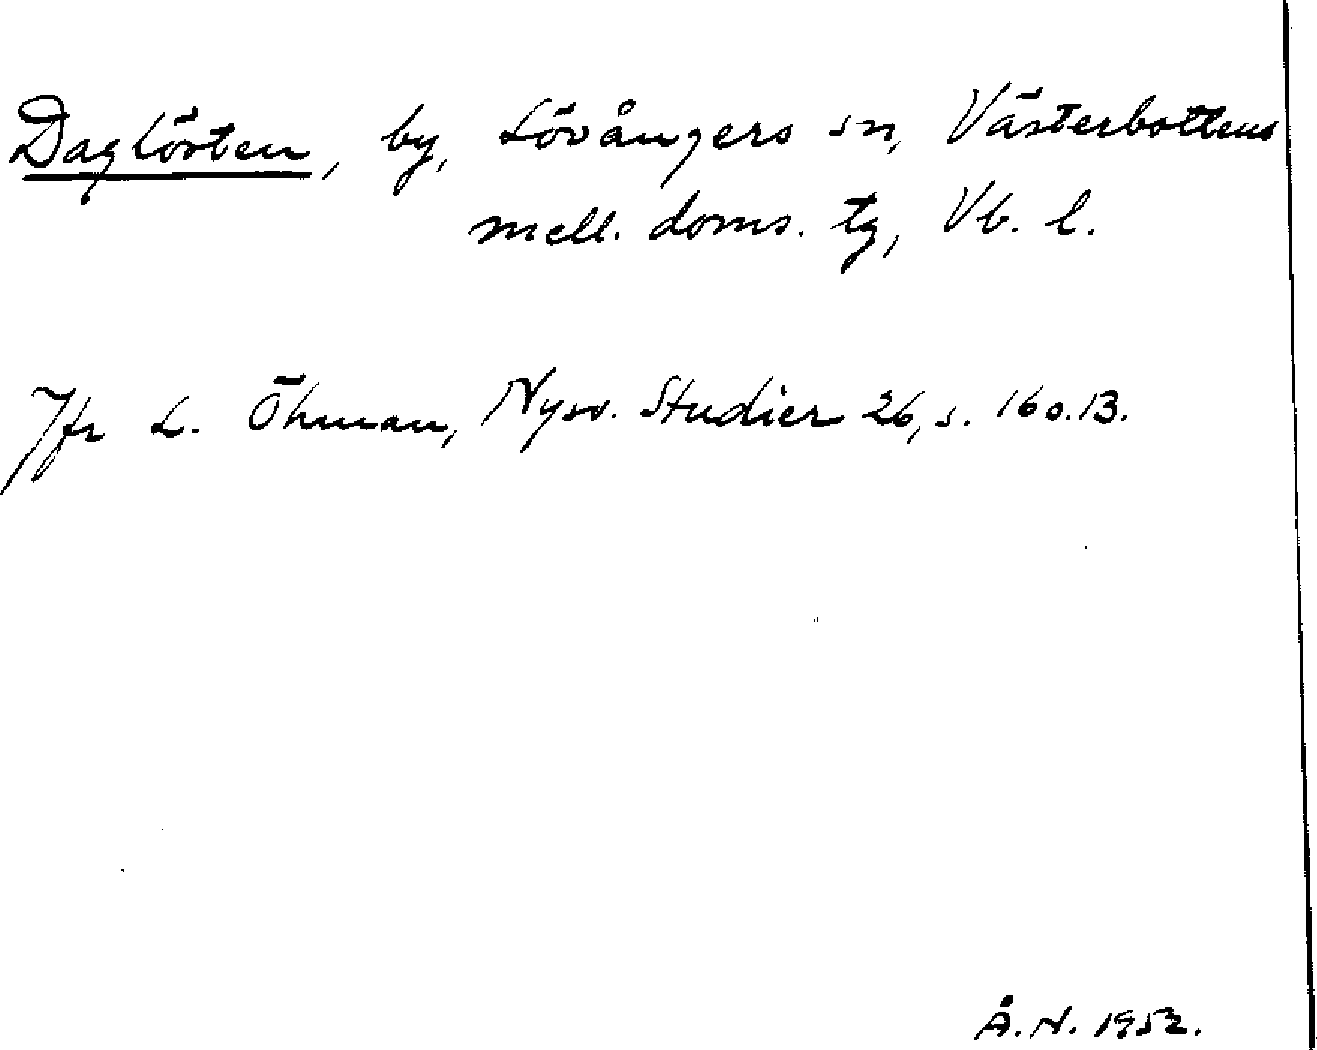 Daglösten, by, Lövångers sn, Västerbottens
mell. doms. tg, Vb. l.
Jfr L. Öhman, Nysv. Studier 26, s. 160.13.
Å. N. 1952.